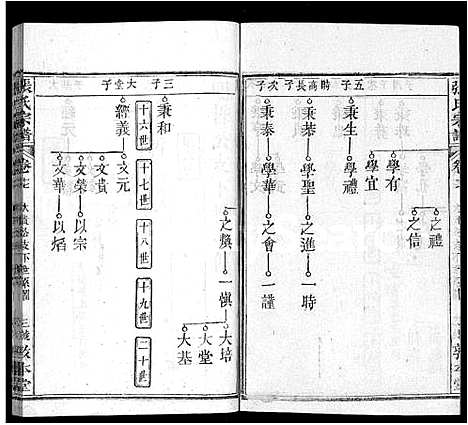 張氏宗譜
卷十七
五子 時高長子 次子
學有
之禮
之信
學宜
秉生 學禮
秉棻 學聖 之進 一時
秉泰 學華 之會 一謹
之煥 一慎 大培
大堂
大基
十六世 十七世 十八世 十九世 二十世
三子 大堂子
秉和
經義 文元
文貴
文榮 以宗
文華 以焰
張氏宗譜
卷十七
三義 敦本堂